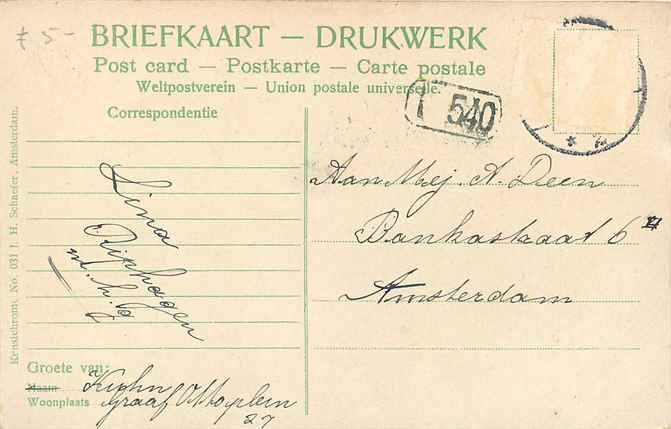 £ 5-
BRIEFKAART — DRUKWERK
Post card — Postkarte — Carte postale
Weltpostverein — Union postale universelle.
Correspondentie
540
Aan Mej. A. Deen
Bankastraat 6 II
Amsterdam
Lina
Riphagen
m. h. g.
Groete van:
Naam
Woonplaats
Kuhn
Graaf Ottoplein
27
Kunstchromo. No. 031 J. H. Schaefer, Amsterdam.